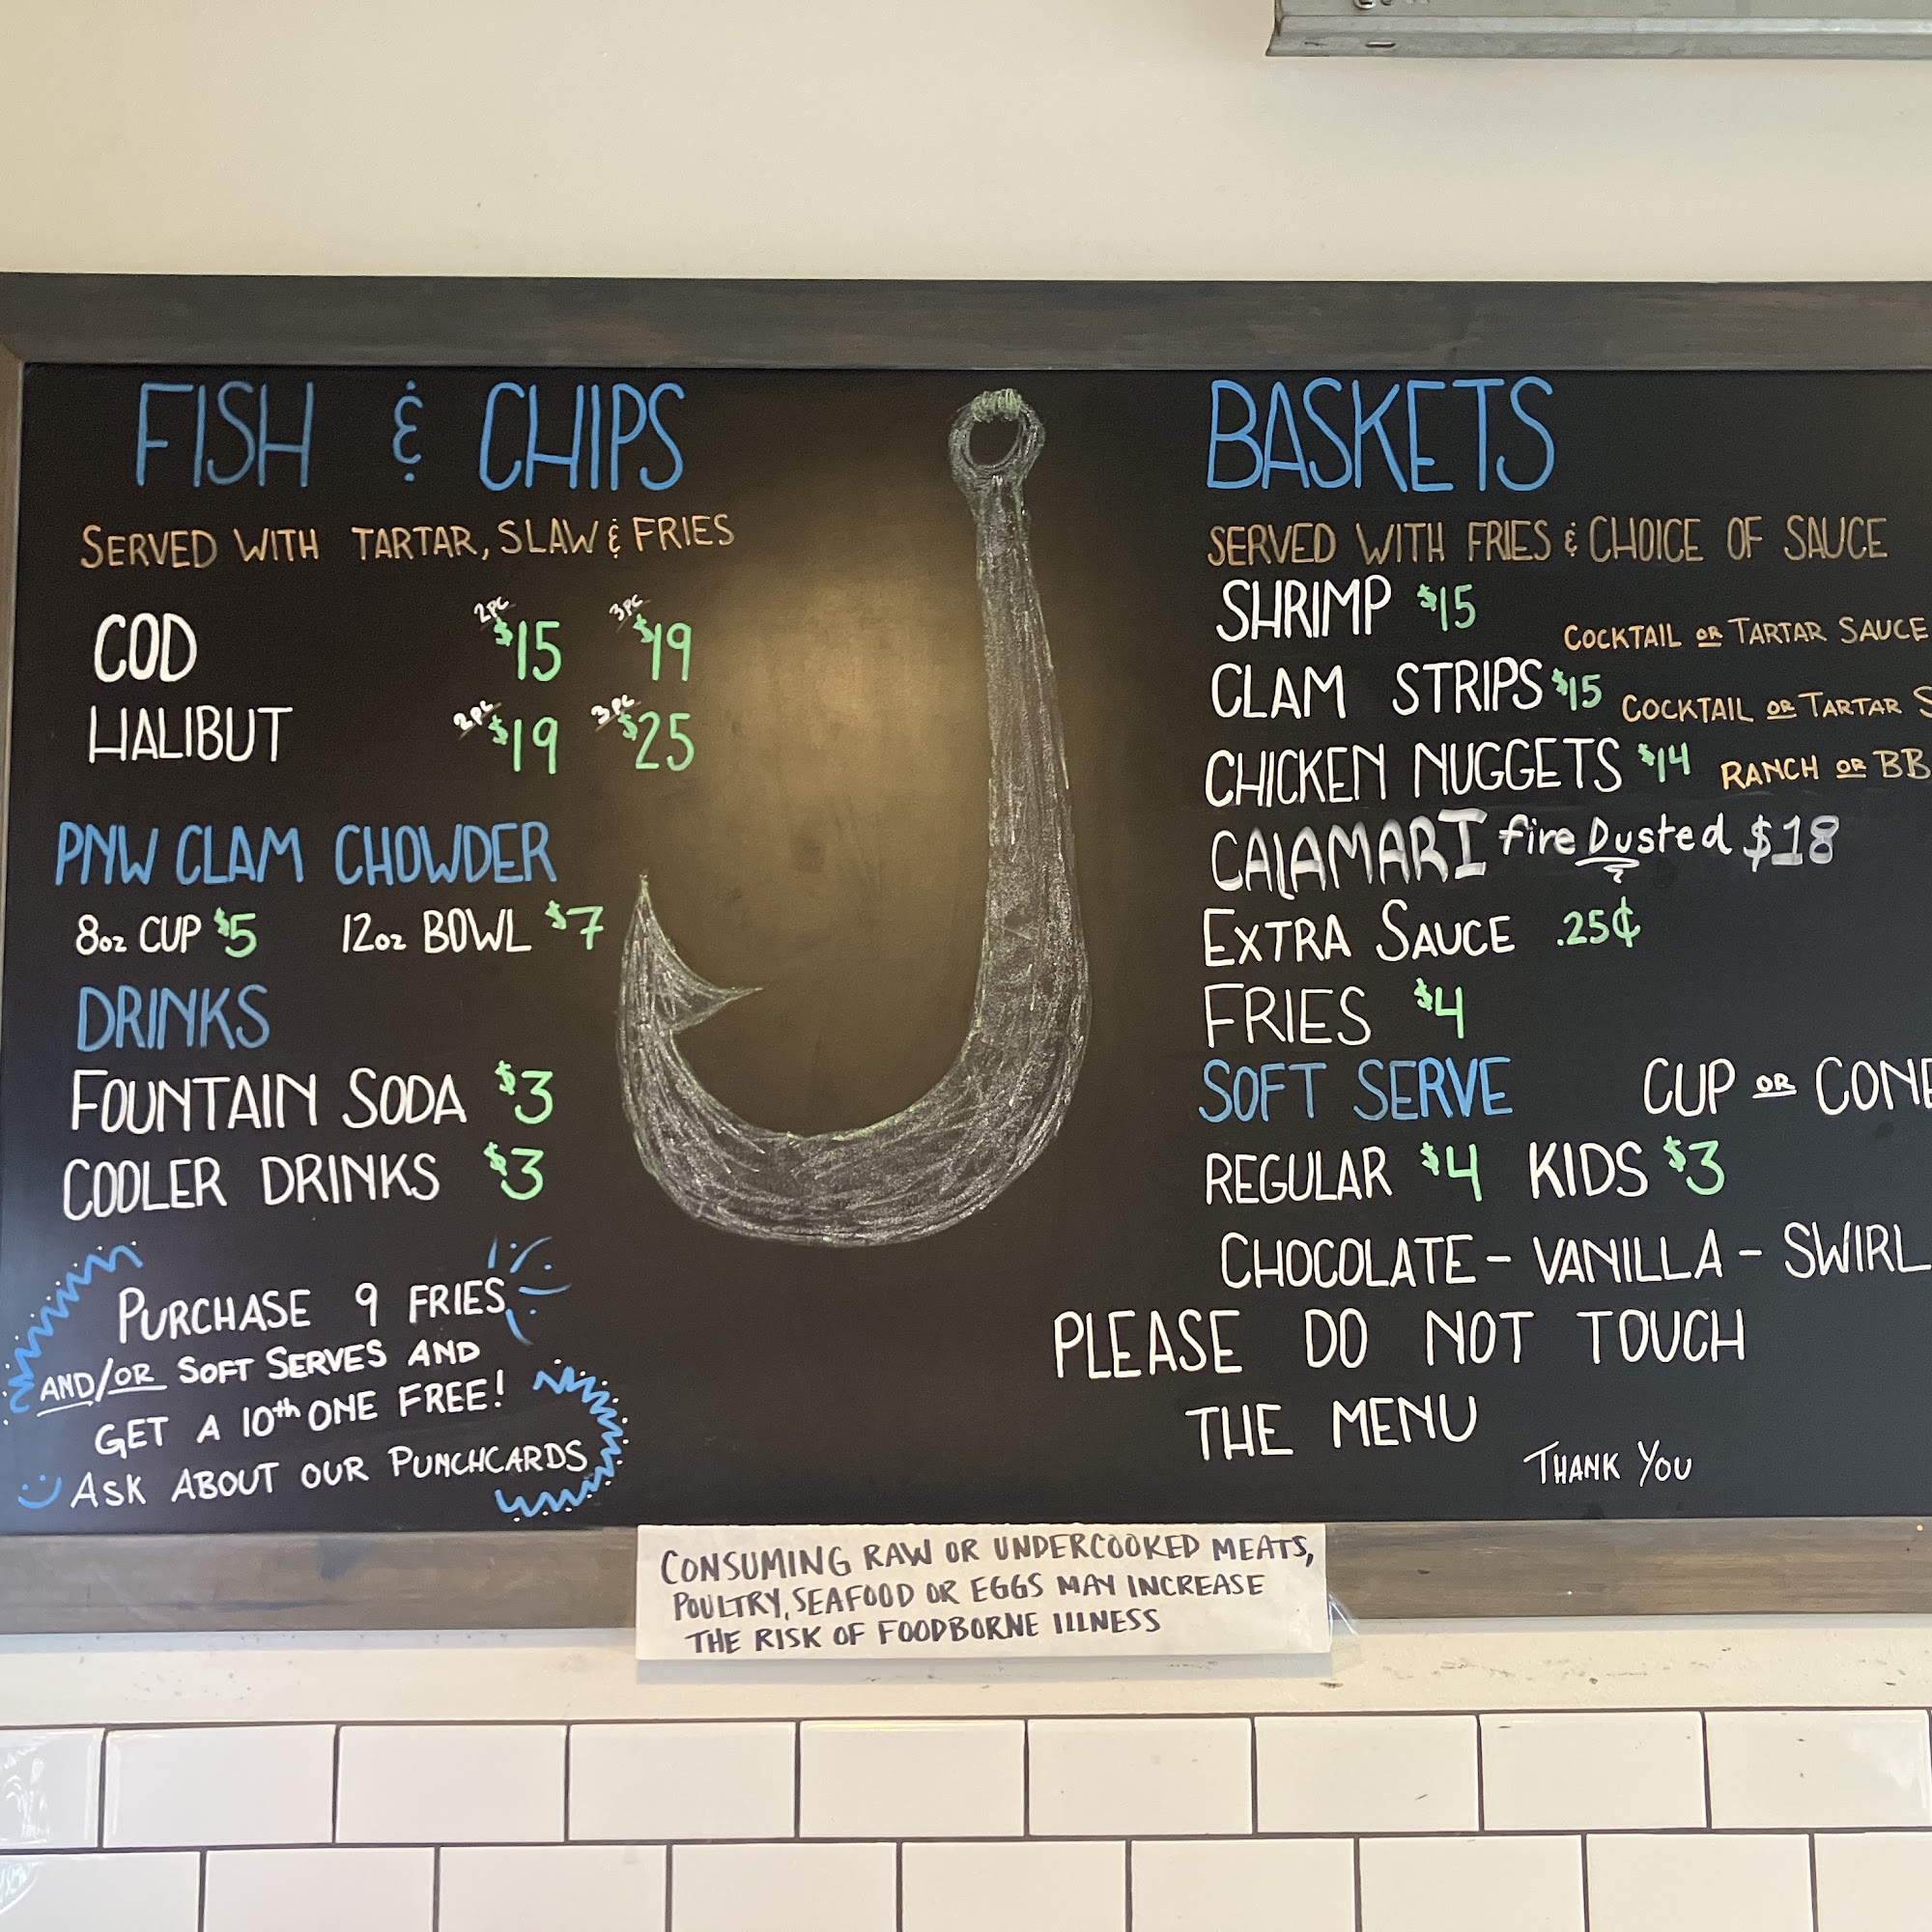 FISH & CHIPS
SERVED WITH TARTAR, SLAW & FRIES
COD 2PC $15 3PC $19
HALIBUT 2PC $19 3PC $25
PNW CLAM CHOWDER
8oz CUP $5 12oz BOWL $7
DRINKS
FOUNTAIN SODA $3
COOLER DRINKS $3
PURCHASE 9 FRIES
AND/OR SOFT SERVES AND
GET A 10th ONE FREE!
ASK ABOUT OUR PUNCHCARDS
BASKETS
SERVED WITH FRIES & CHOICE OF SAUCE
SHRIMP $15 COCKTAIL OR TARTAR SAUCE
CLAM STRIPS $15 COCKTAIL OR TARTAR S
CHICKEN NUGGETS $14 RANCH OR BB
CALAMARI fire Dusted $18
EXTRA SAUCE .25¢
FRIES $4
SOFT SERVE CUP OR CONE
REGULAR $4 KIDS $3
CHOCOLATE - VANILLA - SWIRL
PLEASE DO NOT TOUCH
THE MENU
THANK YOU
CONSUMING RAW OR UNDERCOOKED MEATS,
POULTRY, SEAFOOD OR EGGS MAY INCREASE
THE RISK OF FOODBORNE ILLNESS